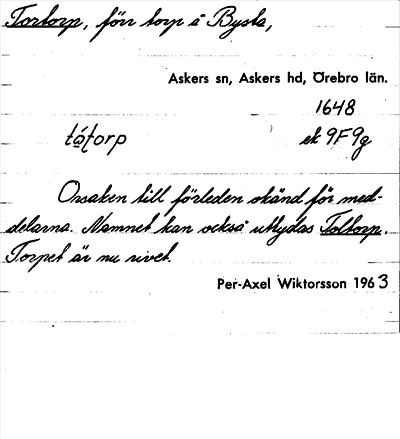 Tortorp, förr torp å Bysta,
Askers sn, Askers hd, Örebro län.
1648
tǻtorp ek 9F9g
Orsaken till förleden okänd för med-
delarna. Namnet kan också uttydas Toltorp.
Torpet är nu rivet.
Per-Axel Wiktorsson 1963